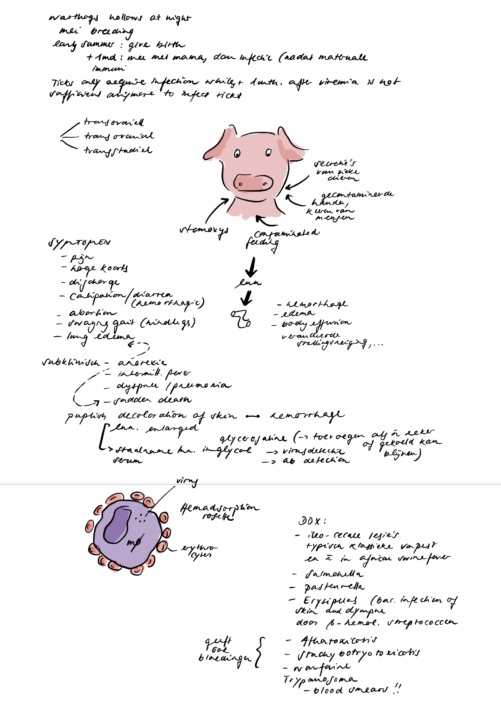 warthogs hollows at night
mei breeding
early summer : give birth
+ 1md : mee met mama, dan infectie (nadat maternale
immuni
Ticks only acquire infection while ± 1mth. after viremia is not
sufficient anymore to infect ticks
transovarial
transstadial
secretie's
van zieke
dieren
gecontamineerde
handen,
kleren van
mensen
stomoxys
contaminated
feeding
lnn
SYMPTOMEN
- pijn
- hoge koorts
- discharge
- constipation/diarree
(hemorrhagic)
- abortion
- swaying gait (hindlegs)
- lung edema
- hemorrhage
- edema
- body effusion
veranderde
stollingsneiging,...
subklinisch - anorexia
- intermitt. fever
- dyspnee / pneumonia
- sudden death
purplish decoloration of skin hemorrhage
lnn. enlarged
(-> toevoegen als
of gekoeld kan
blijven)
staalname lnn. in glycerol -> virusdetectie
serum -> ab detection
virus
Hemadsorption
rosette
mø
erythro-
cytes
DDX :
- ileo-cecale lesie's
typisch klassieke varkenspest
en in african swine fever
- salmonella
- pasteurella
- Erysipelas (bac. infection of
skin and lymph
door β-hemol. streptococcen
geeft
ook
bloedingen
- Aflatoxicosis
- stachybotryotoxicosis
- warfarine
Trypanosoma
- blood smears !!